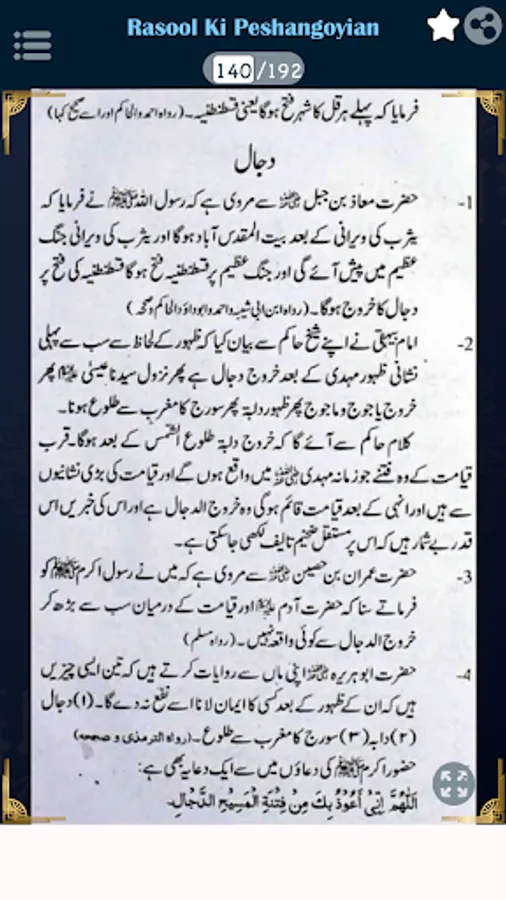 Rasool Ki Peshangoyian
140/192
فرمایا کہ پہلے ہرقل کا شہر فتح ہوگا یعنی قسطنطنیہ۔ (رواہ احمد والحاکم اور اسے صحیح کہا)
دجال
1- حضرت معاذ بن جبل ؓ سے مروی ہے کہ رسول اللہ ﷺ نے فرمایا کہ
یثرب کی ویرانی کے بعد بیت المقدس آباد ہوگا اور یثرب کی ویرانی جنگ
عظیم میں پیش آئے گی اور جنگ عظیم پر قسطنطنیہ فتح ہوگا قسطنطنیہ کی فتح پر
دجال کا خروج ہوگا۔ (رواہ ابن ابی شیبہ واحمد وابوداؤد والحاکم وصححہ)
2- امام بیہقی نے اپنے شیخ حاکم سے بیان کیا کہ ظہور کے لحاظ سے سب سے پہلی
نشانی ظہور مہدی کے بعد خروج دجال ہے پھر نزول سیدنا عیسیٰ علیہ السلام پھر
خروج یاجوج و ماجوج پھر ظہور دابۃ پھر سورج کا مغرب سے طلوع ہونا۔
کلام حاکم سے آئے گا کہ خروج دابۃ طلوع الشمس کے بعد ہوگا۔ قرب
قیامت کے وہ فتنے جو زمانہ مہدی ؓ میں واقع ہوں گے اور قیامت کی بڑی نشانیوں
سے ہیں اور انہی کے بعد قیامت قائم ہوگی وہ خروج الدجال ہے اور اس کی خبریں اس
قدر بے شمار ہیں کہ اس پر مستقل ضخیم تالیف لکھی جاسکتی ہے۔
3- حضرت عمران بن حصین ؓ سے مروی ہے کہ میں نے رسول اکرم ﷺ کو
فرماتے سنا کہ حضرت آدم علیہ السلام اور قیامت کے درمیان سب سے بڑھ کر
خروج الدجال سے کوئی واقعہ نہیں۔ (رواہ مسلم)
4- حضرت ابوہریرہ ؓ اپنی ماں سے روایات کرتے ہیں کہ تین ایسی چیزیں
ہیں کہ ان کے ظہور کے بعد کسی کا ایمان لانا اسے نفع نہ دے گا۔ (۱) دجال
(۲) دابہ (۳) سورج کا مغرب سے طلوع۔ (رواہ الترمذی و صححہ)
حضور اکرم ﷺ کی دعاؤں میں سے ایک دعا یہ بھی ہے:
اَللّٰهُمَّ اِنِّىْ اَعُوْذُ بِكَ مِنْ فِتْنَةِ الْمَسِيْحِ الدَّجَّالِ۔